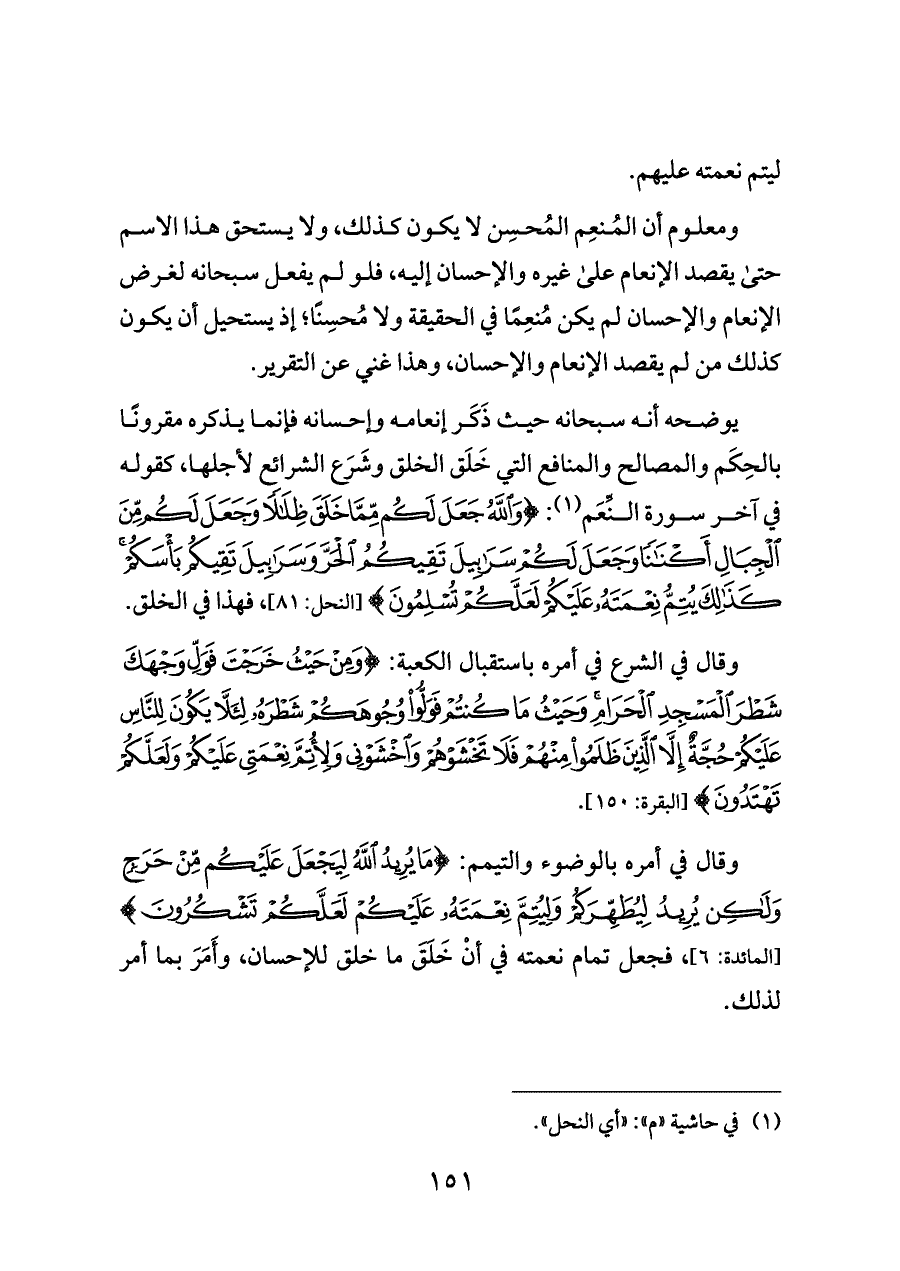 ليتم نعمته عليهم.
ومعلوم أن المُنعِم المُحسِن لا يكون كذلك، ولا يستحق هذا الاسم
حتىٰ يقصد الإنعام علىٰ غيره والإحسان إليه، فلو لم يفعل سبحانه لغرض
الإنعام والإحسان لم يكن مُنعِمًا في الحقيقة ولا مُحسِنًا؛ إذ يستحيل أن يكون
كذلك من لم يقصد الإنعام والإحسان، وهذا غني عن التقرير.
يوضحه أنه سبحانه حيث ذَكَر إنعامه وإحسانه فإنما يذكره مقرونًا
بالحِكَم والمصالح والمنافع التي خَلَق الخلق وشَرَع الشرائع لأجلها، كقوله
في آخر سورة النِّعَم(١): ﴿وَٱللَّهُ جَعَلَ لَكُم مِّمَّا خَلَقَ ظِلَٰلًا وَجَعَلَ لَكُم مِّنَ
ٱلْجِبَالِ أَكْنَٰنًا وَجَعَلَ لَكُمْ سَرَٰبِيلَ تَقِيكُمُ ٱلْحَرَّ وَسَرَٰبِيلَ تَقِيكُم بَأْسَكُمْ ۚ
كَذَٰلِكَ يُتِمُّ نِعْمَتَهُۥ عَلَيْكُمْ لَعَلَّكُمْ تُسْلِمُونَ﴾ [النحل: ٨١]، فهذا في الخلق.
وقال في الشرع في أمره باستقبال الكعبة: ﴿وَمِنْ حَيْثُ خَرَجْتَ فَوَلِّ وَجْهَكَ
شَطْرَ ٱلْمَسْجِدِ ٱلْحَرَامِ ۚ وَحَيْثُ مَا كُنتُمْ فَوَلُّوا۟ وُجُوهَكُمْ شَطْرَهُۥ لِئَلَّا يَكُونَ لِلنَّاسِ
عَلَيْكُمْ حُجَّةٌ إِلَّا ٱلَّذِينَ ظَلَمُوا۟ مِنْهُمْ فَلَا تَخْشَوْهُمْ وَٱخْشَوْنِى وَلِأُتِمَّ نِعْمَتِى عَلَيْكُمْ وَلَعَلَّكُمْ
تَهْتَدُونَ﴾ [البقرة: ١٥٠].
وقال في أمره بالوضوء والتيمم: ﴿مَا يُرِيدُ ٱللَّهُ لِيَجْعَلَ عَلَيْكُم مِّنْ حَرَجٍ
وَلَٰكِن يُرِيدُ لِيُطَهِّرَكُمْ وَلِيُتِمَّ نِعْمَتَهُۥ عَلَيْكُمْ لَعَلَّكُمْ تَشْكُرُونَ﴾
[المائدة: ٦]، فجعل تمام نعمته في أنْ خَلَقَ ما خلق للإحسان، وأَمَرَ بما أمر
لذلك.
(١) في حاشية «م»: «أي النحل».
١٥١